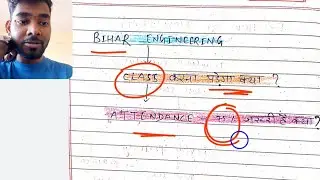 BIHAR ENGINEERING
CLASS करना पड़ेगा क्या ?
ATTENDANCE - 75% जरूरी है क्या ?